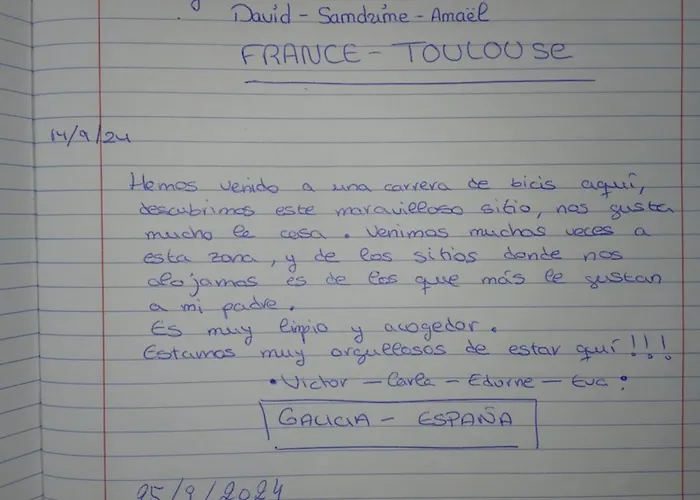 David - Samdzime - Amaël
FRANCE - TOULOUSE
14/9/24
Hemos venido a una carrera de bicis aquí,
descubrimos este maravilloso sitio, nos gusta
mucho la casa. Venimos muchas veces a
esta zona, y de los sitios donde nos
alojamos es de los que más le gustan
a mi padre.
Es muy limpio y acogedor.
Estamos muy orgullosos de estar quí!!!
• Victor - Carla - Edurne - Eva:
GALICIA - ESPAÑA
25/9/2024